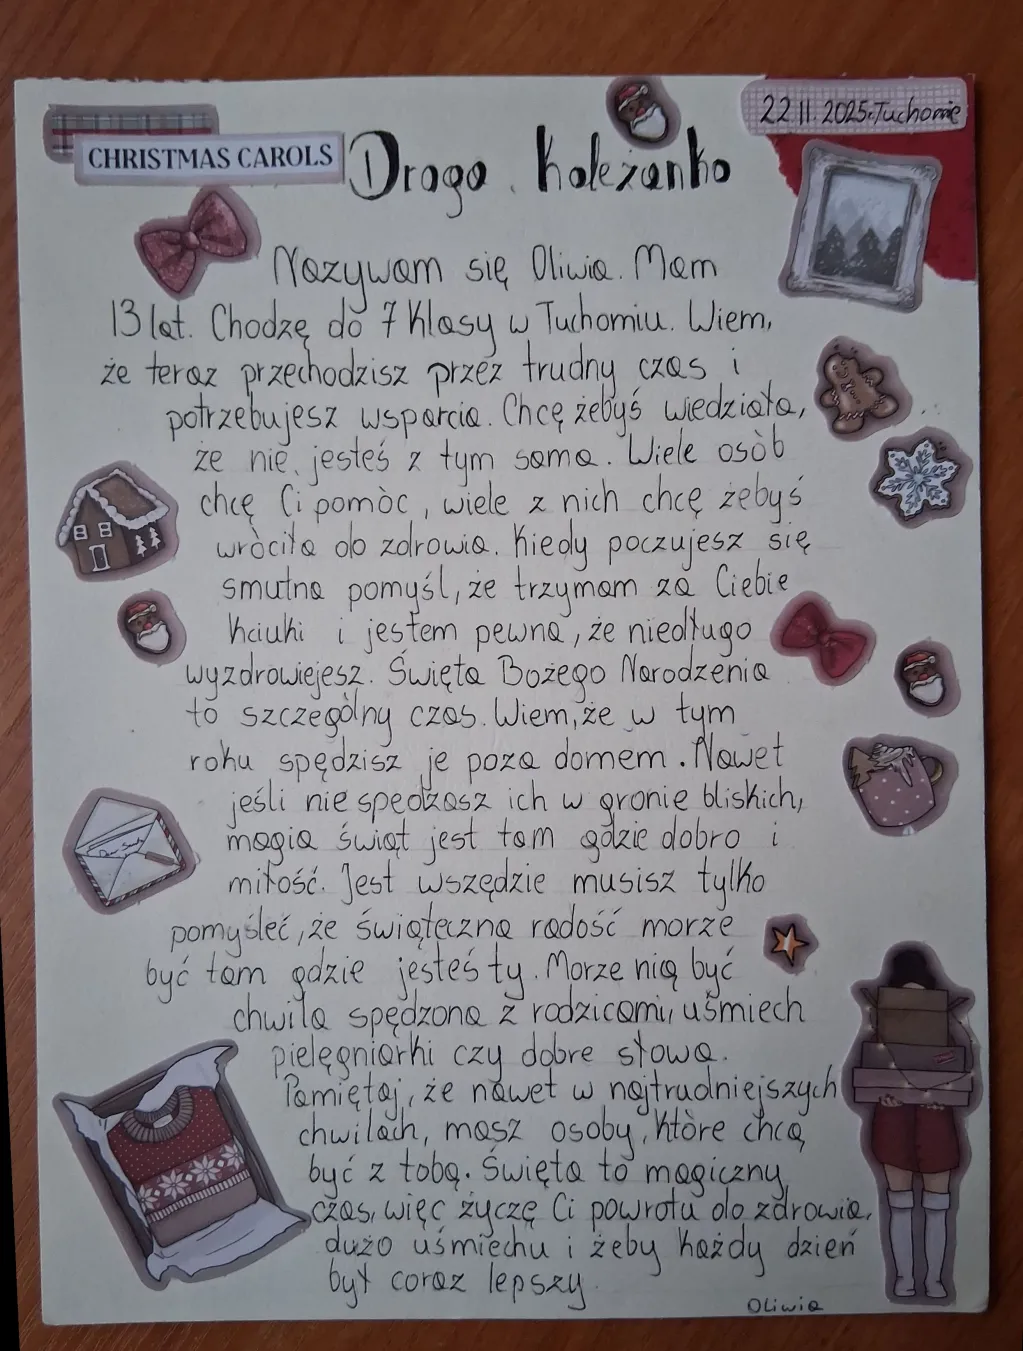 22 11. 2025r Tuchomie
CHRISTMAS CAROLS
Droga Koleżanko
Nazywam się Oliwia. Mam
13 lat. Chodzę do 7 klasy w Tuchomiu. Wiem,
że teraz przechodzisz przez trudny czas i
potrzebujesz wsparcia. Chcę żebyś wiedziała,
że nie jesteś z tym sama. Wiele osòb
chcę Ci pomòc, wiele z nich chcę żebyś
wròciła do zdrowia. Kiedy poczujesz się
smutna pomyśl, że trzymam za Ciebie
kciuki i jestem pewna, że niedługo
wyzdrowiejesz. Święta Bożego Narodzenia
to szczegòlny czas. Wiem, że w tym
roku spędzisz je poza domem. Nawet
jeśli nie spędzasz ich w gronie bliskich,
magia świąt jest tam gdzie dobro i
miłość. Jest wszędzie musisz tylko
pomyśleć, że świąteczna radość morze
być tam gdzie jesteś ty. Morze nią być
chwila spędzona z rodzicami, uśmiech
pielęgniarki czy dobre słowa.
Pamiętaj, że nawet w najtrudniejszych
chwilach, masz osoby, które chcą
być z tobą. Święta to magiczny
czas, więc życzę Ci powrotu do zdrowia,
dużo uśmiechu i żeby każdy dzień
był coraz lepszy.
Oliwia